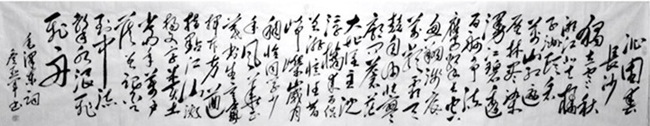 沁园春
长沙
独立寒秋
湘江北去橘
子洲头看
万山红遍
层林尽染
漫江碧透
百舸争流
鹰击长空
鱼翔浅底
万类霜天
竞自由怅寥
廓问苍茫
大地谁主沉
浮携来百侣
曾游忆往昔
峥嵘岁月
稠恰同学少
年风华正茂
书生意气
挥斥方遒
指点江山激
扬文字粪土
当年万户
侯曾记否
到中流
击水浪遏
飞舟
毛泽东词